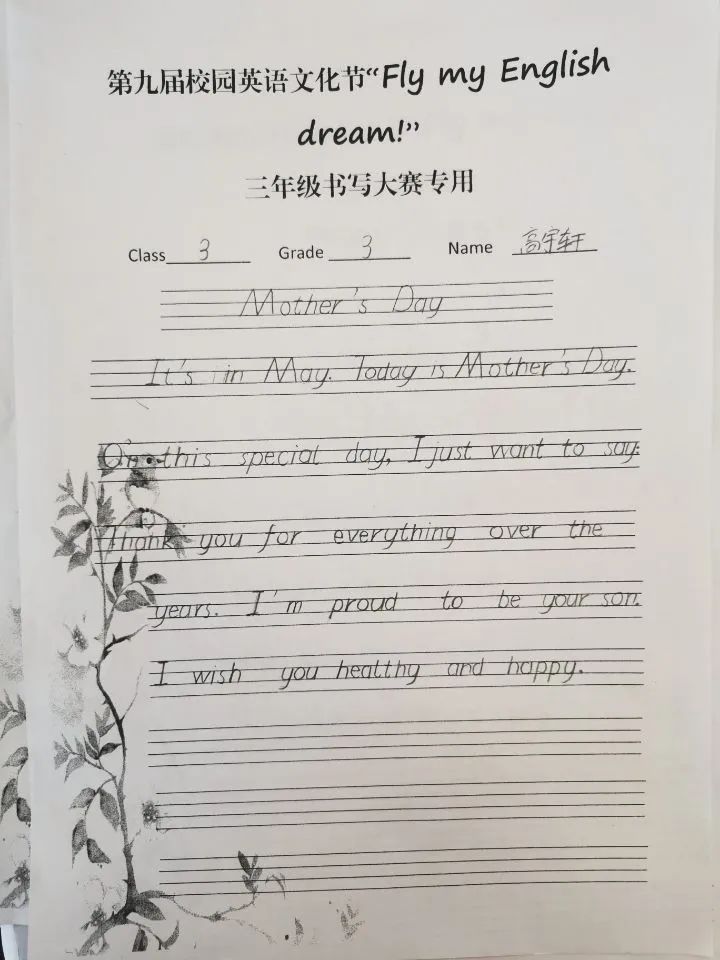 第九届校园英语文化节“Fly my English
dream!”
三年级书写大赛专用
Class 3 Grade 3 Name 高宇轩
Mother's Day
It's in May. Today is Mother's Day.
On this special day, I just want to say:
Thank you for everything over the
years. I'm proud to be your son.
I wish you healthy and happy.